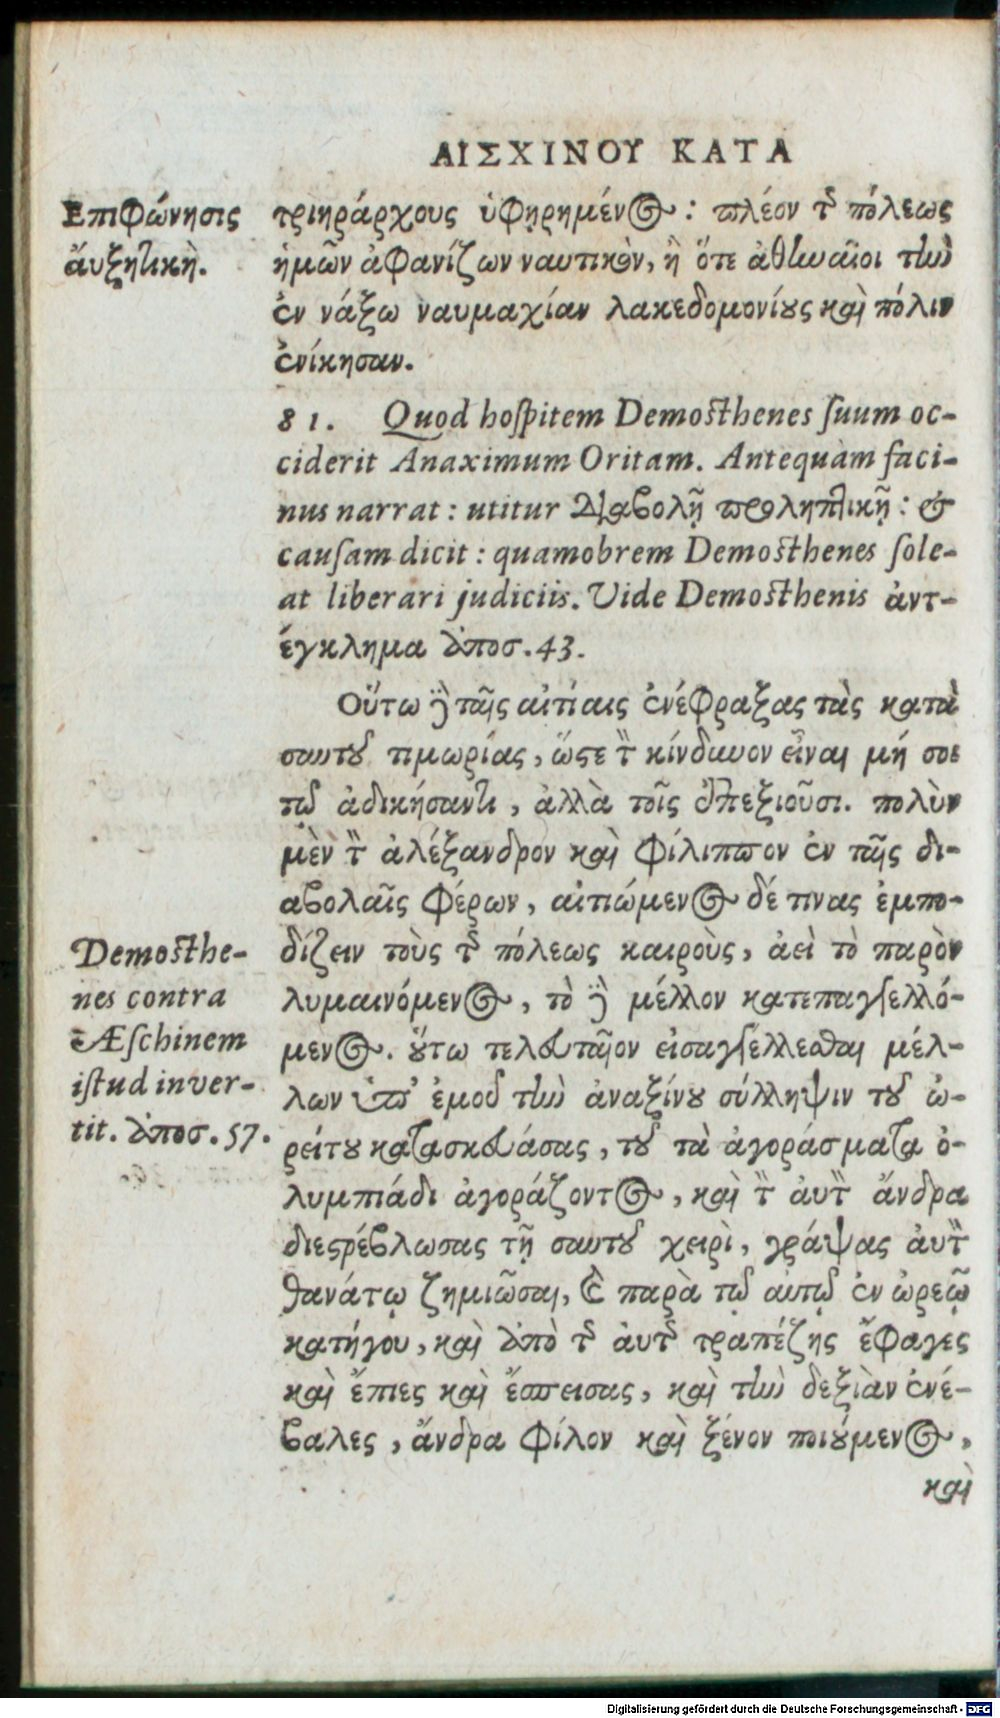 ΑΙΣΧΙΝΟΥ ΚΑΤΑ
Επιφώνησις
ἄυξητικὴ.
τριηράρχους ὑφῃρημένος: πλέον τῆς πόλεως
ἡμῶν ἀφανίζων ναυτικὸν, ἢ ὅτε ἀθηναῖοι τὴν
ἐν νάξω ναυμαχίαν λακεδομονίους καὶ πόλιν
ἐνίκησαν.
81. Quod hoſpitem Demoſthenes ſuum oc-
ciderit Anaximum Oritam. Antequàm faci-
nus narrat: utitur Διαβολῇ προληπτικῇ: &
cauſam dicit: quamobrem Demoſthenes ſole-
at liberari judiciis. Vide Demoſthenis ἀντ-
έγκλημα ἀποσ. 43.
Οὕτω ὃ ταῖς αἰτίαις ἐνέφραξας τὰς κατὰ
σαυτοῦ τιμωρίας, ὥστε τὸν κίνδυνον εἶναι μή σοι
τῷ ἀδικήσαντι, ἀλλὰ τοῖς ἐπεξιοῦσι. πολὺν
μὲν τὸν ἀλέξανδρον καὶ φίλιππον ἐν ταῖς δι-
αβολαῖς φέρων, αἰτιώμενος δέ τινας ἐμπο-
δίζειν τοὺς τῆς πόλεως καιροὺς, ἀεὶ τὸ παρὸν
λυμαινόμενος, τὸ δὲ μέλλον κατεπαγγελλό-
μενος. οὕτω τελευταῖον εἰσαγγέλλεσθαι μέλ-
λων ὑπ᾽ ἐμοῦ τὴν ἀναξίνου σύλληψιν τοῦ ὠ-
ρείτου κατασκευάσας, τοῦ τὰ ἀγοράσματα ὀ-
λυμπιάδι ἀγοράζοντος, καὶ τὸν ἀυτὸν ἄνδρα
διεστρέβλωσας τῇ σαυτοῦ χειρὶ, γράψας ἀυτὸν
θανάτῳ ζημιῶσαι, καὶ παρὰ τῷ αὐτῷ ἐν ὠρεῷ
κατήγου, καὶ ἀπὸ τῆς ἀυτῆς τραπέζης ἔφαγες
καὶ ἔπιες καὶ ἔσπεισας, καὶ τὴν δεξιὰν ἐνέ-
βαλες, ἄνδρα φίλον καὶ ξένον ποιούμενος,
καὶ
Demoſthe-
nes contra
Æſchinem
iſtud inver-
tit. ἀποσ. 57.
Digitalisierung gefördert durch die Deutsche Forschungsgemeinschaft - DFG